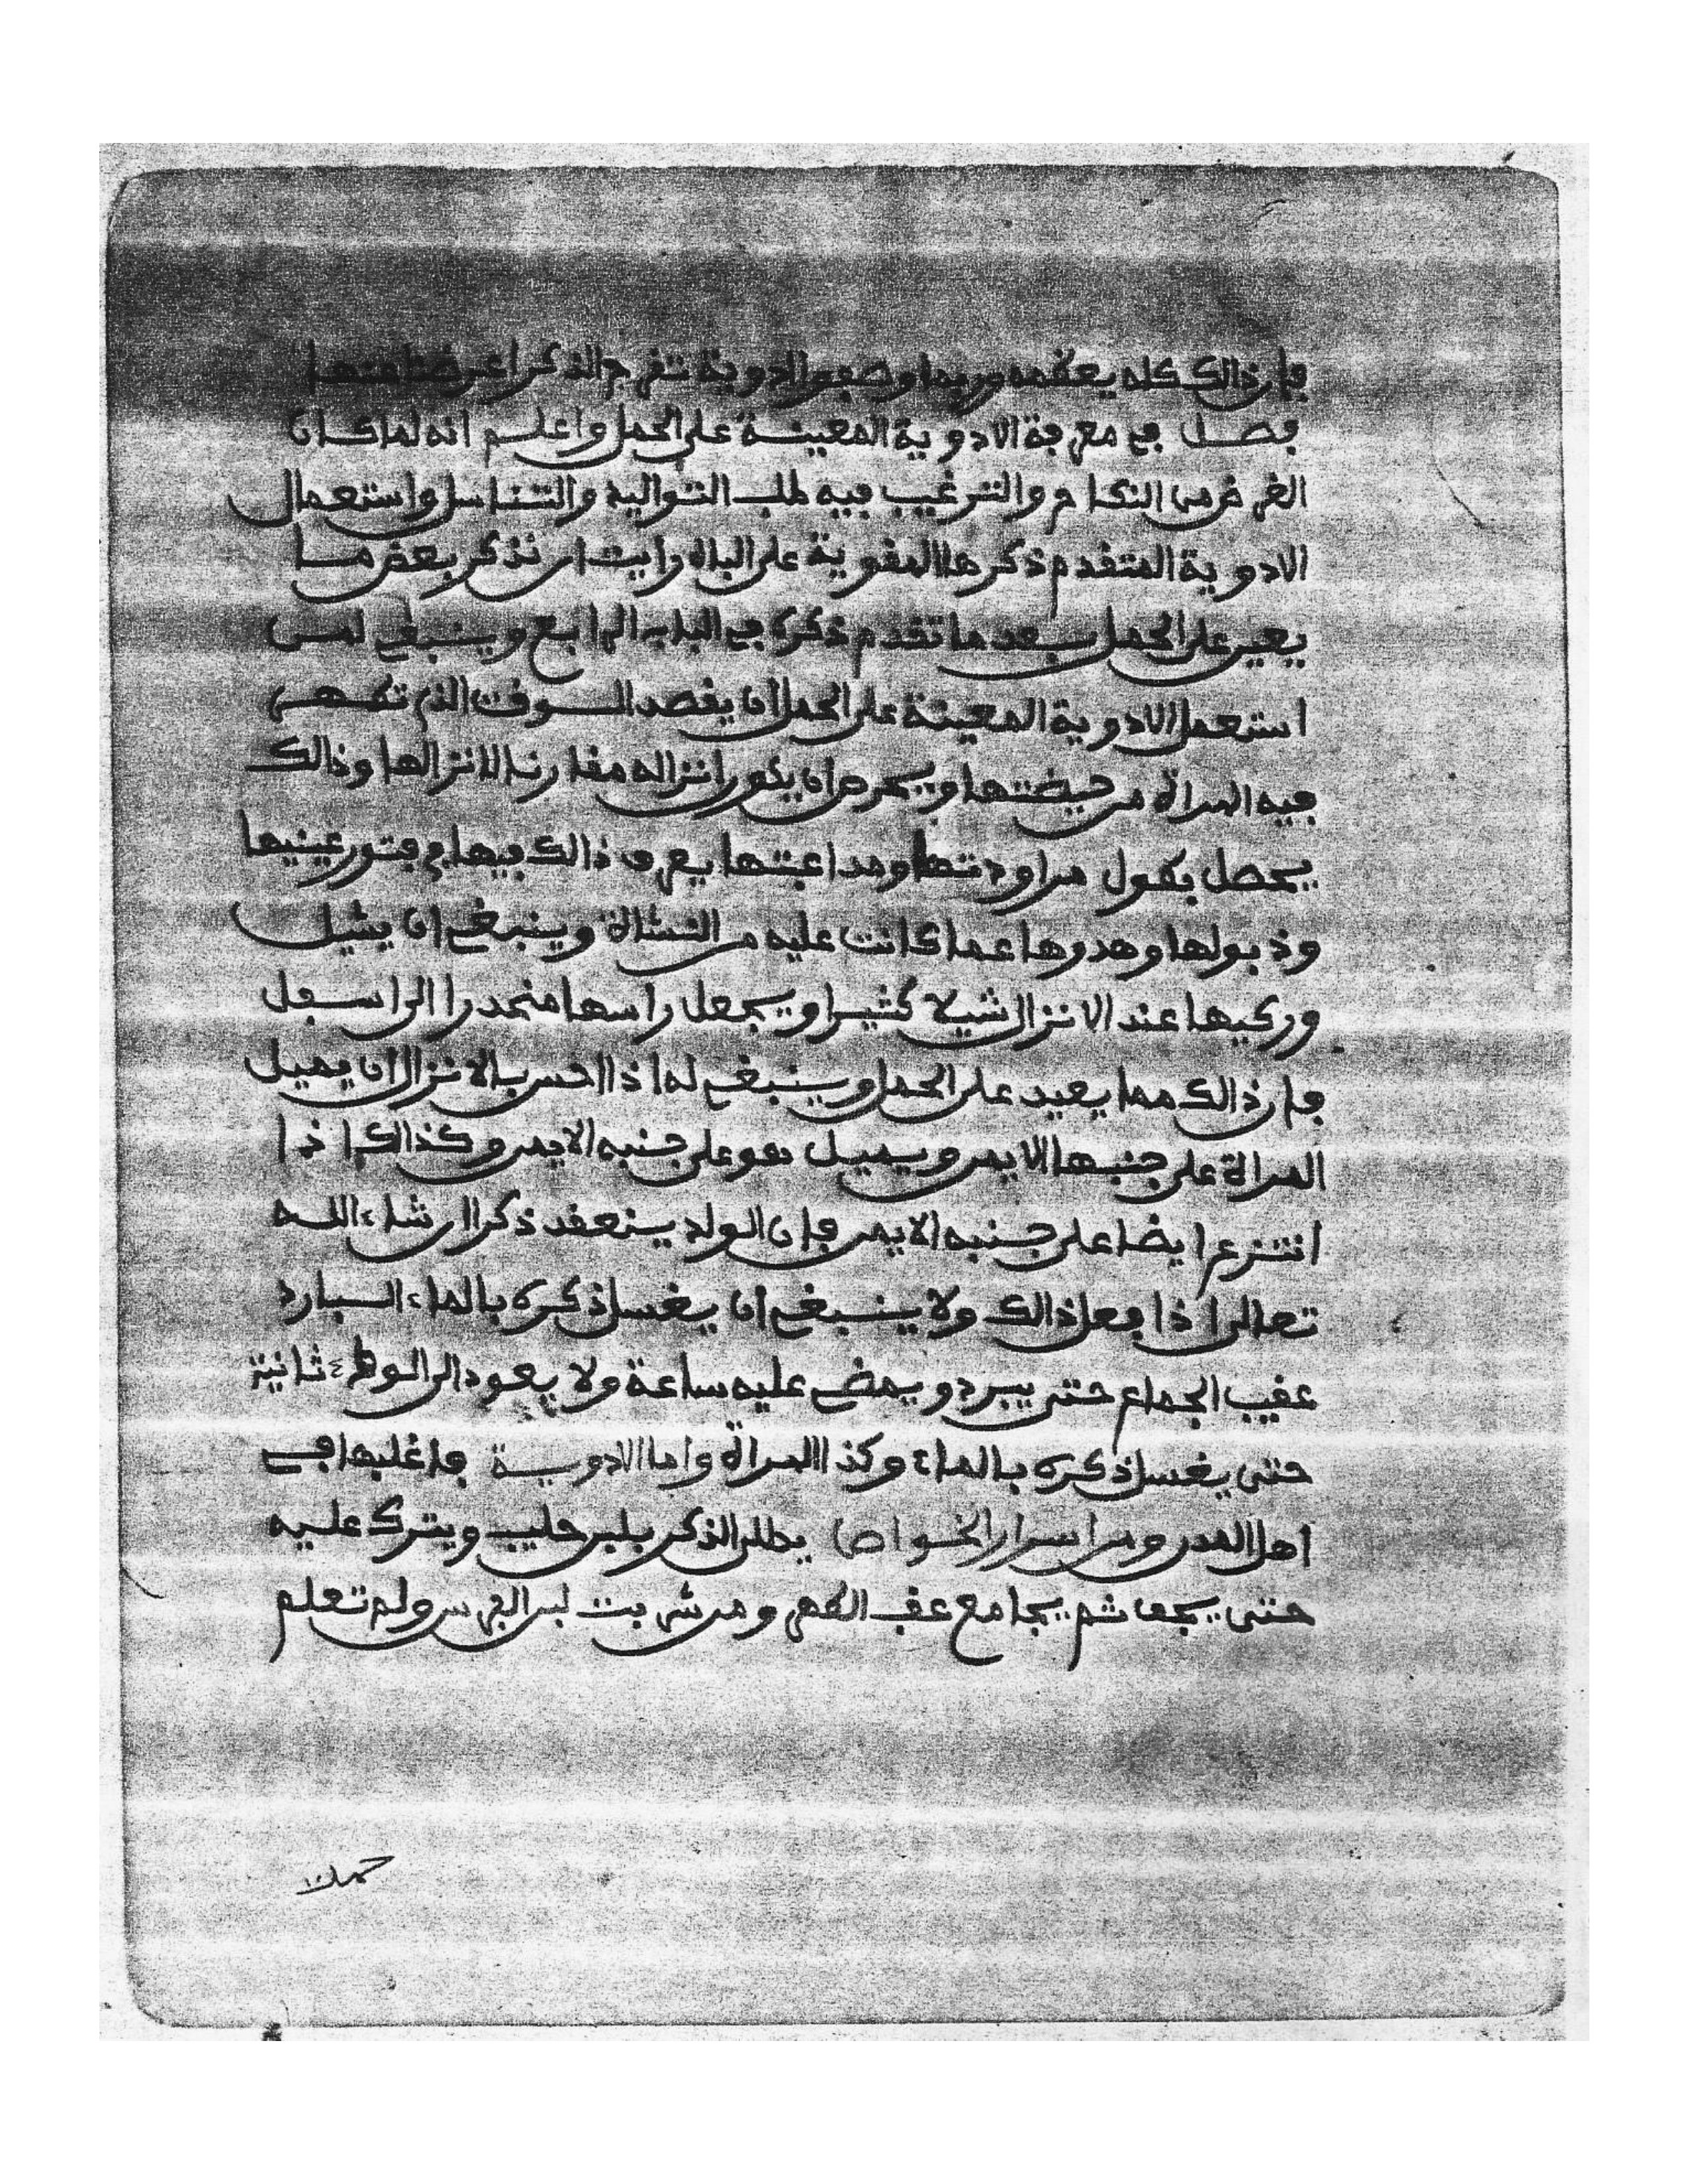 فإن ذالك كله يعظمه وربما وصفو الادوية تفرح الذكر اعرضنا عنها
فصل في معرفة الادوية المعينة على الحمل واعلم انه لما كان
الغرض من النكاح والترغيب فيه طلب التواليد والتناسل واستعمال
الادوية المتقدم ذكرها المقوية على الباه رايت ان نذكر بعض ما
يعين على الحمل بعد ما تقدم ذكره في الباب الرابع وينبغي لمن
استعمل الادوية المعينة على الحمل ان يقصد الوقت الذي تطهر
فيه المراة من حيضتها ويحرص أن يكون انزاله مقارنا لانزالها وذالك
يحصل بطول مراودتها ومداعبتها يعرف ذالك فيها في فتور عينيها
وذبولها وهدوها عما كانت عليه من النشالة وينبغي ان يشيل
وركيها عند الانزال شيلا كثيرا ويجعل راسها منحدرا الى اسفل
فإن ذالك مما يعيد على الحمل وينبغي له اذا احس بالانزال ان يميل
المراة على جنبها الايمن ويميل هو على جنبه الايمن وكذالك اذا
انتزع ايضا على جنبه الايمن فإن الولد ينعقد ذكرا ان شاء الله
تعالى اذا فعل ذالك ولا ينبغي ان يغسل ذكره بالماء البارد
عقيب الجماع حتى يبرد ويمضي عليه ساعة ولا يعود الى الوطء ثانية
حتى يغسل ذكره بالماء وكذا المراة واما الادوية فاغلبها في
اهل المدن ومن اسرار الخواص يطلى الذكر بلبن حليب ويترك عليه
حتى يجف ثم يجامع عقب الطهر ومن شربت لبن الفرس ولم تعلم